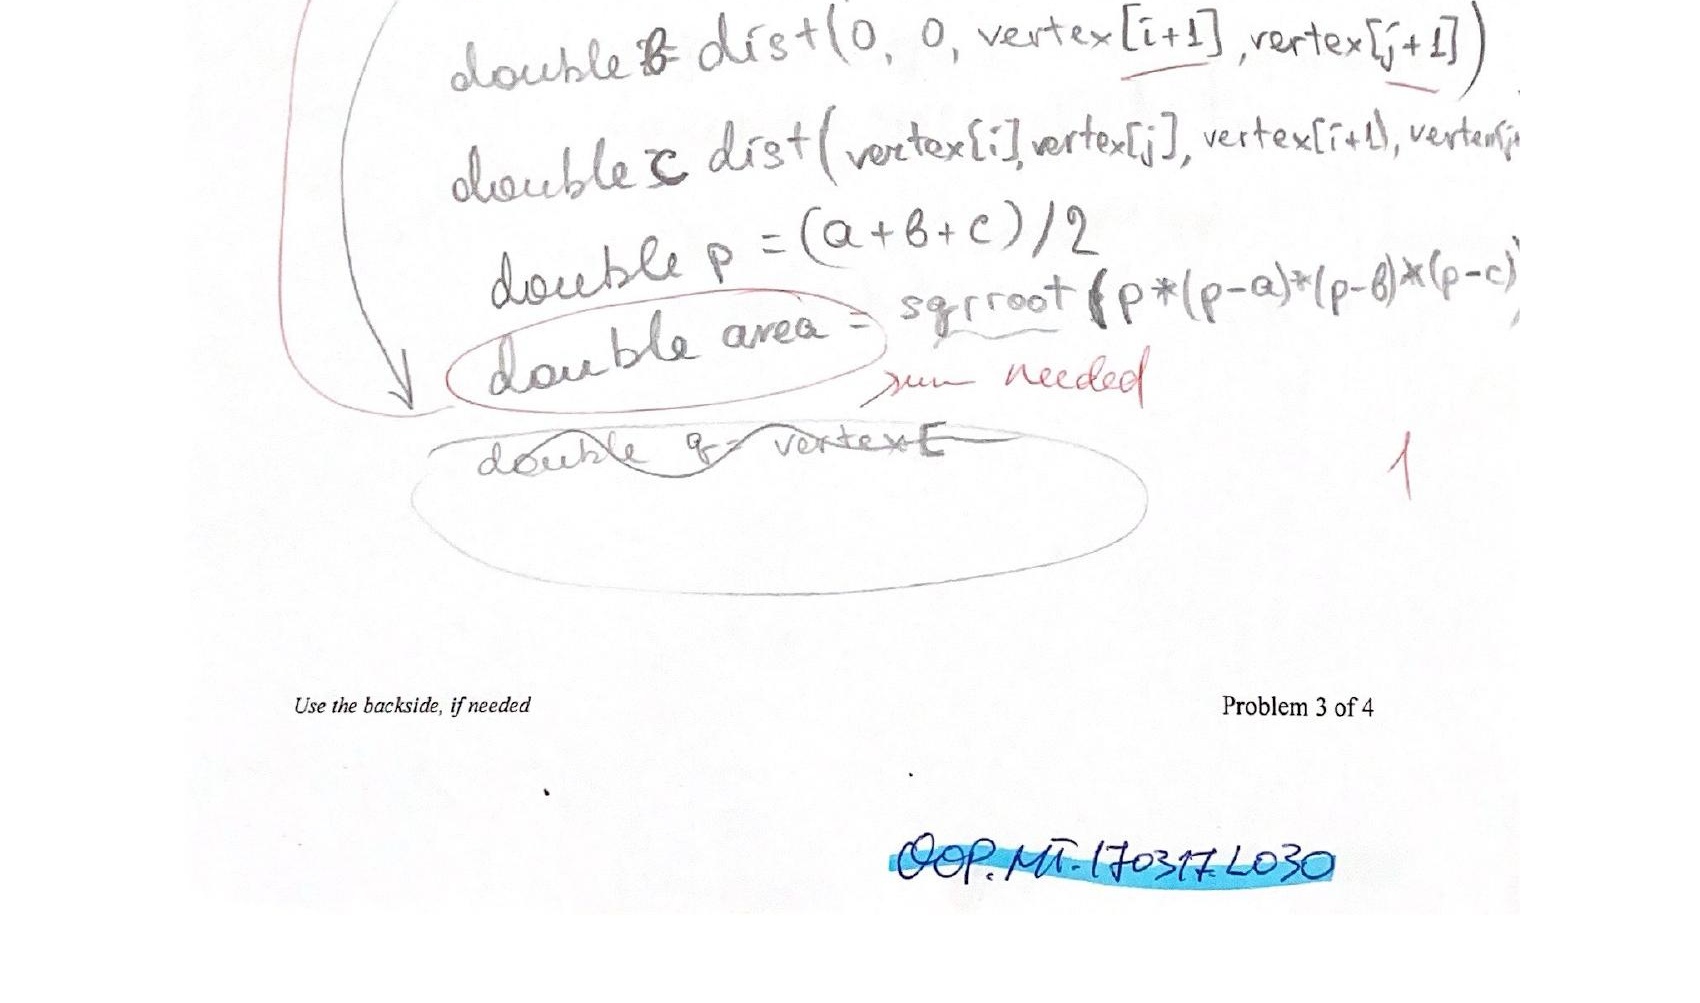 double b= dist(0, 0, vertex[i+1], vertex[j+1])
double c dist(vertex[i], vertex[j], vertex[i+1], vertex[j+
double p = (a+b+c)/2
double area = sqrroot (p*(p-a)*(p-b)*(p-c)
sum needed
double q= vertex[
1
Use the backside, if needed
Problem 3 of 4
OOP.MT.170317.L030